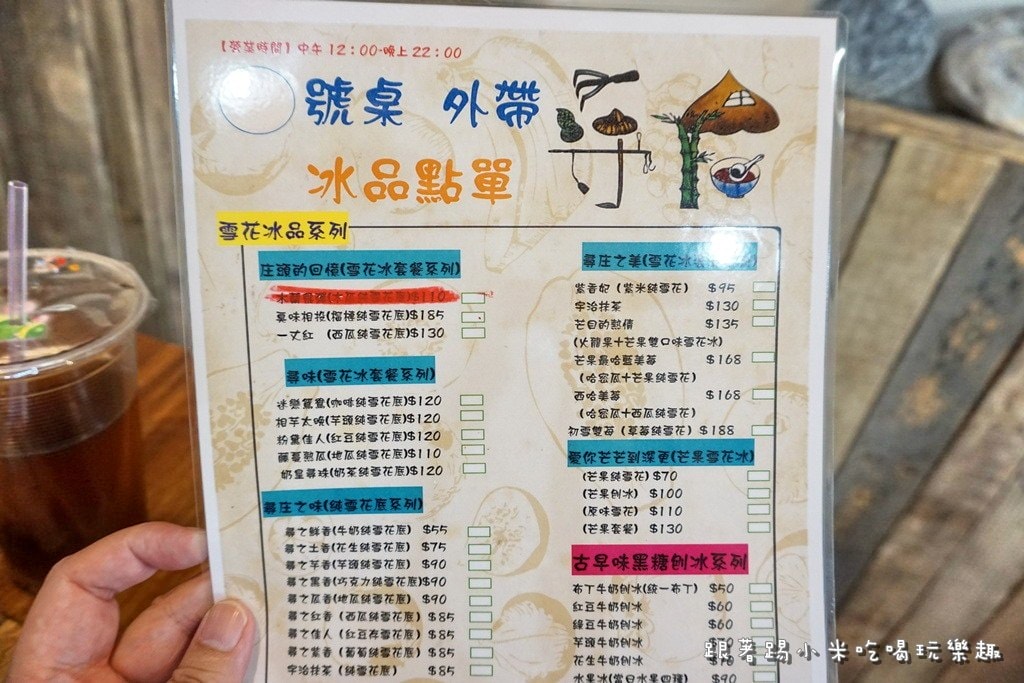 【營業時間】中午 12：00-晚上 22：00
號桌 外帶
冰品點單
雪花冰品系列
庄頭的回憶(雪花冰套餐系列)
$185
一丈紅 (西瓜純雪花底)$130
尋味(雪花冰套餐系列)
迷戀鴛鴦(咖啡純雪花底)$120
相芋太晚(芋頭純雪花底)$120
粉黛佳人(紅豆純雪花底)$120
(地瓜純雪花底)$110
奶皇尋珠(奶茶純雪花底)$120
尋庄之味(純雪花底系列)
尋之鮮香(牛奶純雪花底) $55
尋之土香(花生純雪花底) $75
尋之芋香(芋頭純雪花底) $90
尋之黑香(巧克力純雪花底)$90
尋之瓜香(地瓜純雪花底) $90
尋之紅香 (西瓜純雪花底) $85
尋之佳人 $85
尋之紫香 $85
宇治抹茶 (純雪花底) $85
尋庄之美(雪花冰
紫香妃 (紫米純雪花) $95
宇治抹茶 $130
芒目的熱情 $135
(火龍果+芒果雙口味雪花冰)
芒果曼哈蜜美茵 $168
(哈密瓜+芒果純雪花)
西哈美茵 $168
(哈密瓜+西瓜純雪花)
初雪莓茵 (草莓純雪花) $188
愛你芒芒到深更(芒果雪花冰)
(芒果純雪花) $70
(芒果刨冰) $100
(原味雪花) $110
(芒果套餐) $130
古早味黑糖刨冰系列
布丁牛奶刨冰(統一布丁) $50
紅豆牛奶刨冰 $60
綠豆牛奶刨冰 $60
芋頭牛奶刨冰
花生牛奶刨冰
水果冰(當日水果四種) $90
跟著踢小米吃喝玩樂趣